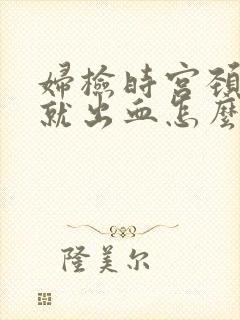 婦檢時宮頸
就出血怎麼
隆美尔